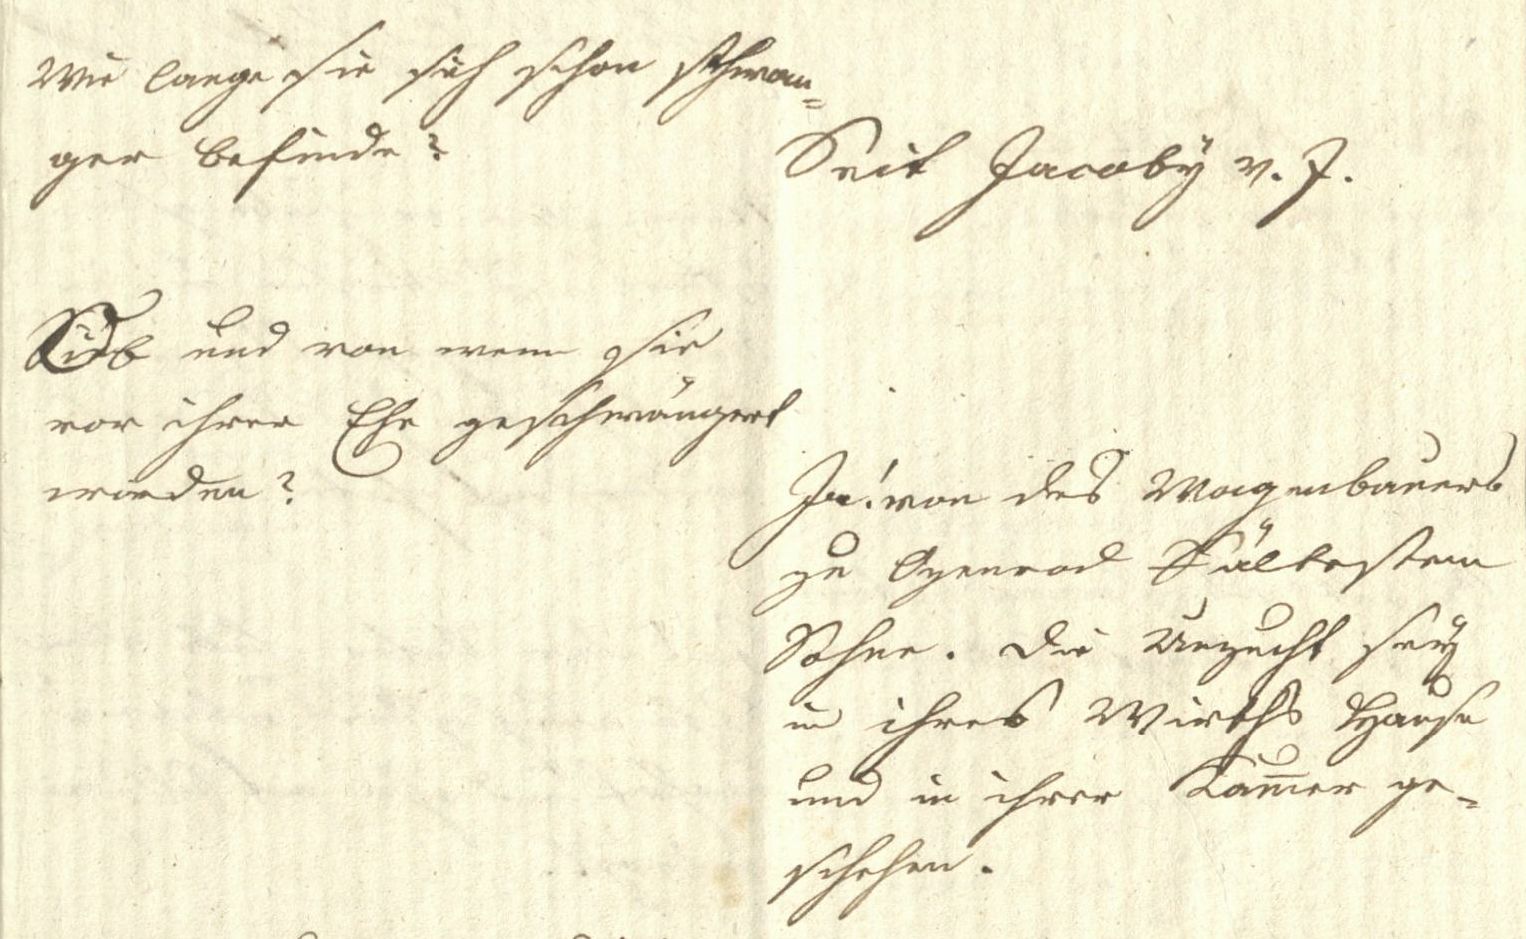 Wie lange sie sich schon schwan-
ger befinde?
Seit Jacoby v. J.
Ob und von wem sie
vor ihrer Ehe geschwängert
worden?
Ja! von des Wagenbauers
zu Ogenrod ältestem
Sohne. Die Unzucht seÿ
in ihres Wirths Hause
und in ihrer Kam̅er ge-
schehen.